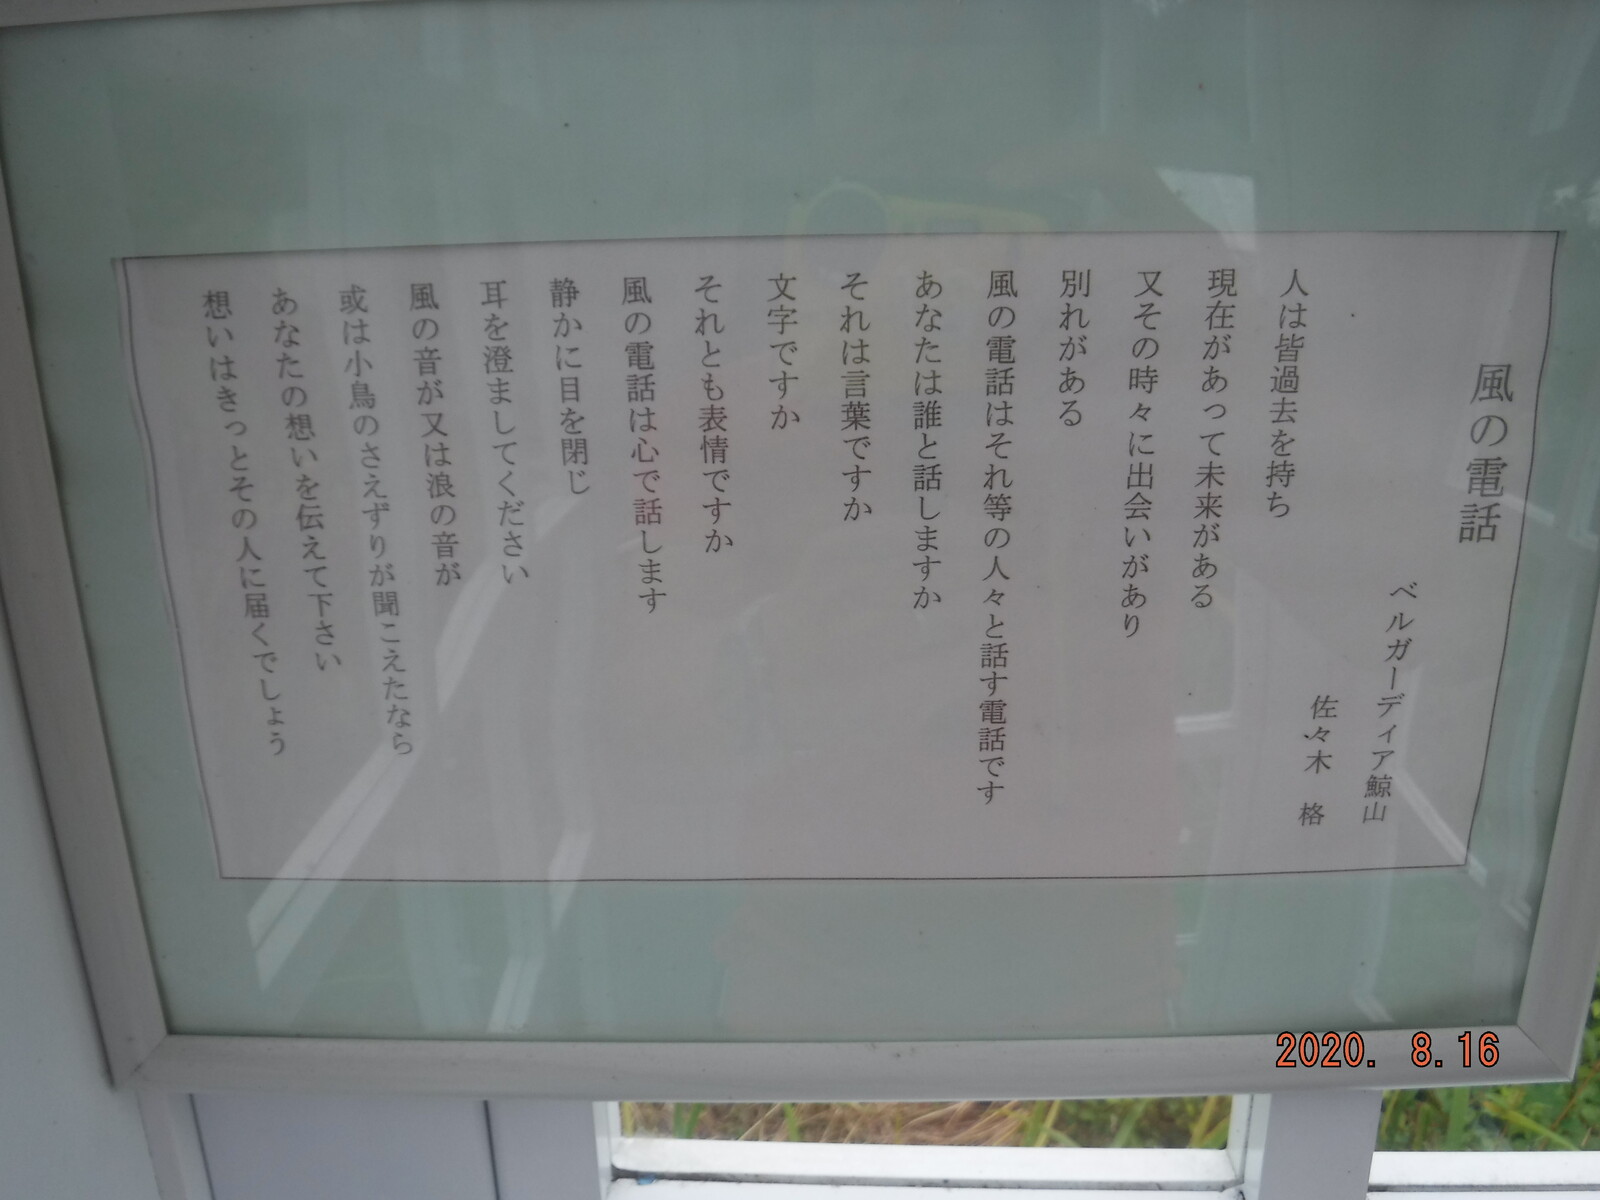 風の電話
ベルガーディア鯨山
佐々木 格
人は皆過去を持ち
現在があって未来がある
又その時々に出会いがあり
別れがある
風の電話はそれ等の人々と話す電話です
あなたは誰と話しますか
それは言葉ですか
文字ですか
それとも表情ですか
風の電話は心で話します
静かに目を閉じ
耳を澄ましてください
風の音が又は浪の音が
或は小鳥のさえずりが聞こえたなら
あなたの想いを伝えて下さい
想いはきっとその人に届くでしょう
2020. 8.16